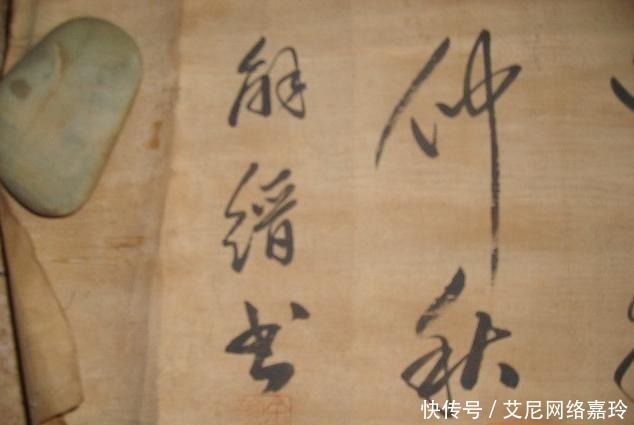 仲秋
解缙书
快传号／艾尼网络嘉玲